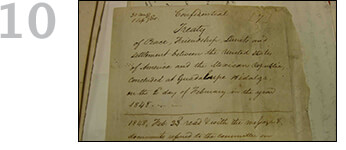 10
Confidential
Treaty
of Peace, Friendship, Limits and
Settlement between the United States
of America and the Mexican Republic
concluded at Guadalupe Hidalgo
on the 2 day of February in the year
1848.
1848, Feb. 23 read & with the message &
documents referred to the committee on